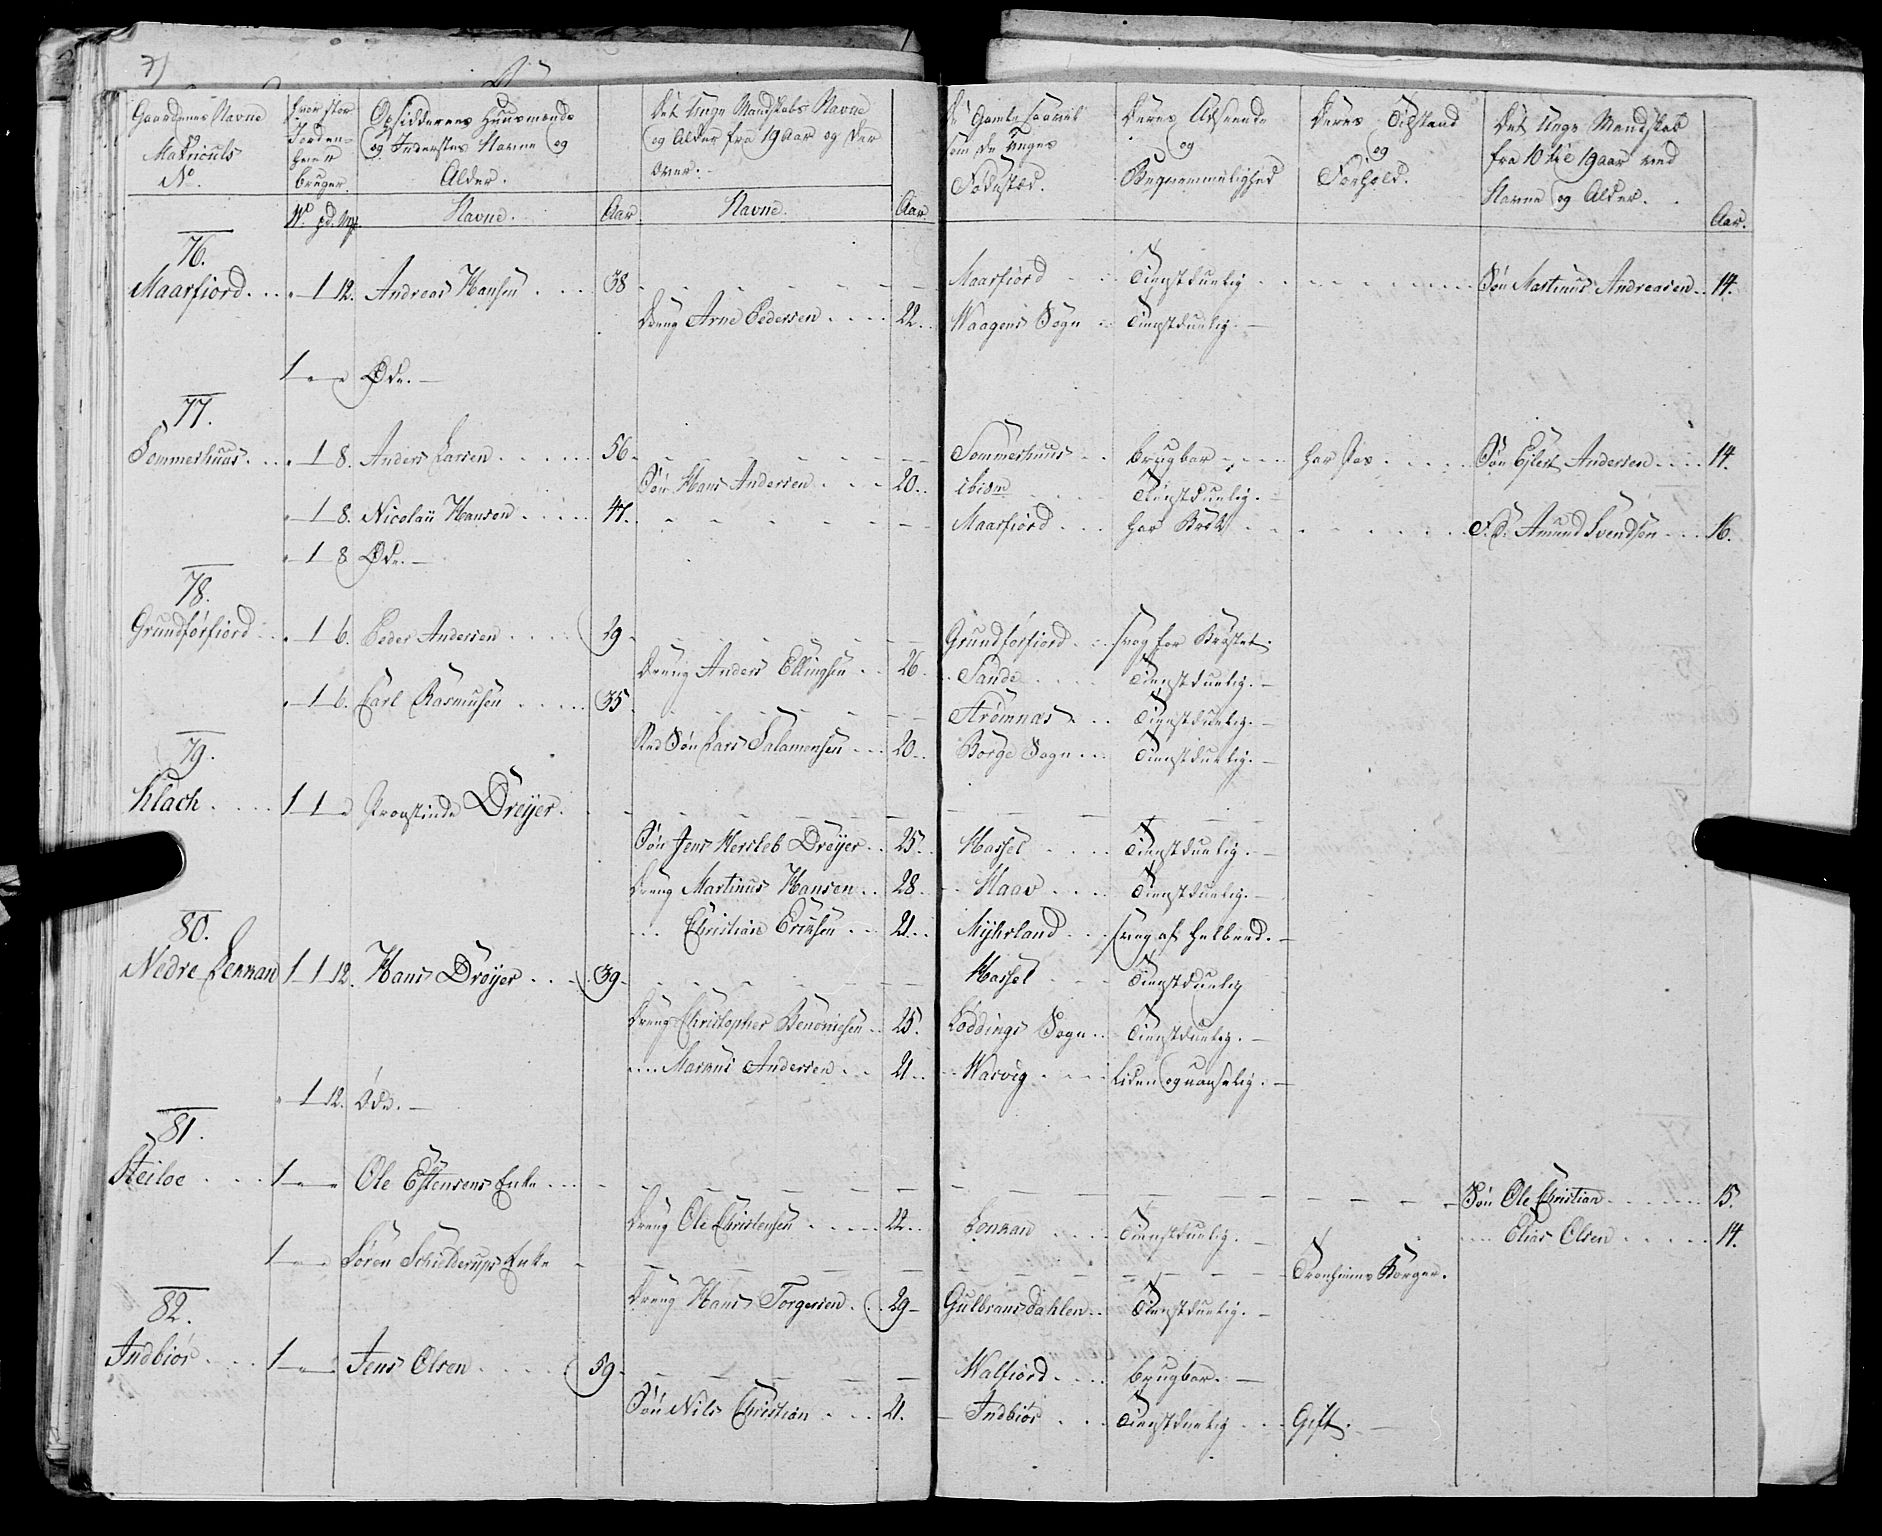 Gaardenes Navne og Matriculs No.
Hvor stor Jorden hver bruger.
Opsiddernes Huusmænds og Inderstes Navne og Alder.
Det Unge Mandskabs Navne og Alder fra 19 Aar og der over.
De Gamle saavel som de Unges Fødested.
Deres Udseende og Beqvemmelighed
Deres Tilstand og Forhold.
Det Unge Mandskab fra 10 til 19 aar ved Navne og Alder.
Navne. Aar Navne. Aar. Aar.
76.
Maarfiord 1 12. Andreas Hansen 38 Maarfiord Tienstduelig Søn Martinus Andreasen 14.
Dreng Arne Pedersen 22. Waagens Sogn Tienstduelig.
1 Øde.
77.
Sommerhuus 1 8. Anders Larsen 56. Sommerhuus brugbar Søn Ejlert Andersen 14.
Søn Hans Andersen 20. ibidm Tienstduelig.
1 8. Nicolaü Hansen 41. Maarfiord har Brok Amund Svendsen 16.
1 8 Øde.
78.
Grundførfiord 1 6. Peder Andersen 29 Grundførfiord svag for Brystet.
Dreng Anders Ellingsen 26 Sande Tienstduelig.
1 6. Carl Rasmusen 35 Strømnæs Tienstduelig.
Søn Lars Salamonsen 20. Borge Sogn Tienstduelig.
79.
Klach 1 1 Provstinde Dreÿer.
Søn Jens Hersleb Dreÿer 25. Hassel Tienstduelig.
Dreng Martinus Hansen 28 Haav Tienstduelig.
Christian Eriksen 21. Mÿhrland svag af Helbred.
80.
Nedre Lennan 1 1 12. Hans Dreÿer 39 Hassel Tienstduelig
Dreng Christopher Benonisen 25. Loddings Sogn Tienstduelig.
Markus Andersen 21 Warvig liden og uanselig.
1 12. Øde.
81.
Steiloe 1 Ole Estensens Enke Søn Ole Christian 15.
Dreng Ole Christensen 22. Lennan Tienstduelig. Elias Olsen 14.
1 Søren Schielderups Enke Tronhiems Borger.
Dreng Hans Torgersen 29 Gulbransdahlen Tienstduelig.
82.
Indbiør 1 Jens Olsen 59 Walfiord brugbar.
Søn Nils Christian 21. Indbiør Tienstduelig Gift.